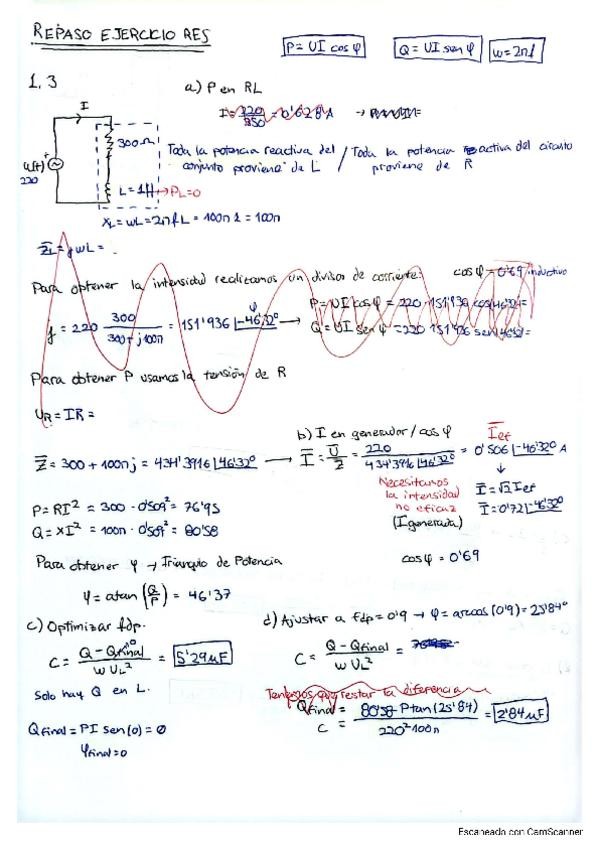 REPASO EJERCICIO RES
P = UI cos φ
Q = UI sen φ
ω = 2πf
1,3
a) P en RL
I
I = 220/350 = 0'628 A →
300Ω
u(t)
220
L = 1H → PL = 0
Toda la potencia reactiva del conjunto proviene de L / Toda la potencia activa del circuito proviene de R
XL = ωL = 2πfL = 100π 1 = 100π
ZL = jωL =
Para obtener la intensidad realizamos un divisor de corriente:
cos φ = 0'69 inductivo
I = 220 300/(300+j100π) = 151'936 |-46'32º →
P = UI cos φ = 220 · 151'936 cos(46'32) =
Q = UI sen φ = 220 151'936 sen(46'32) =
Para obtener P usamos la tensión de R
UR = IR =
b) I en generador / cos φ
Z = 300 + 100πj = 434'3916 |46'32º → I = U/Z = 220/(434'3916 |46'32º) = 0'506 |-46'32º A
Ief
Necesitamos la intensidad no eficaz
(I generada)
I = √2 Ief
I = 0'721 |-46'32º
P = RI² = 300 · 0'509² = 76'95
Q = XI² = 100π · 0'509² = 80'58
Para obtener φ → Triangulo de Potencia
cos φ = 0'69
φ = atan(Q/P) = 46'37
c) Optimizar fdp.
C = (Q - Qfinal)/(ω UL²) = 5'29 μF
0
Solo hay Q en L.
Qfinal = PI sen(0) = 0
φfinal = 0
d) Ajustar a fdp = 0'9 → φ = arcos(0'9) = 25'84º
C = (Q - Qfinal)/(ω UL²) =
Tenemos que restar la diferencia
Qfinal =
C = (80'58 - P tan(25'84))/(220² 100π) = 2'84 μF
Escaneado con CamScanner